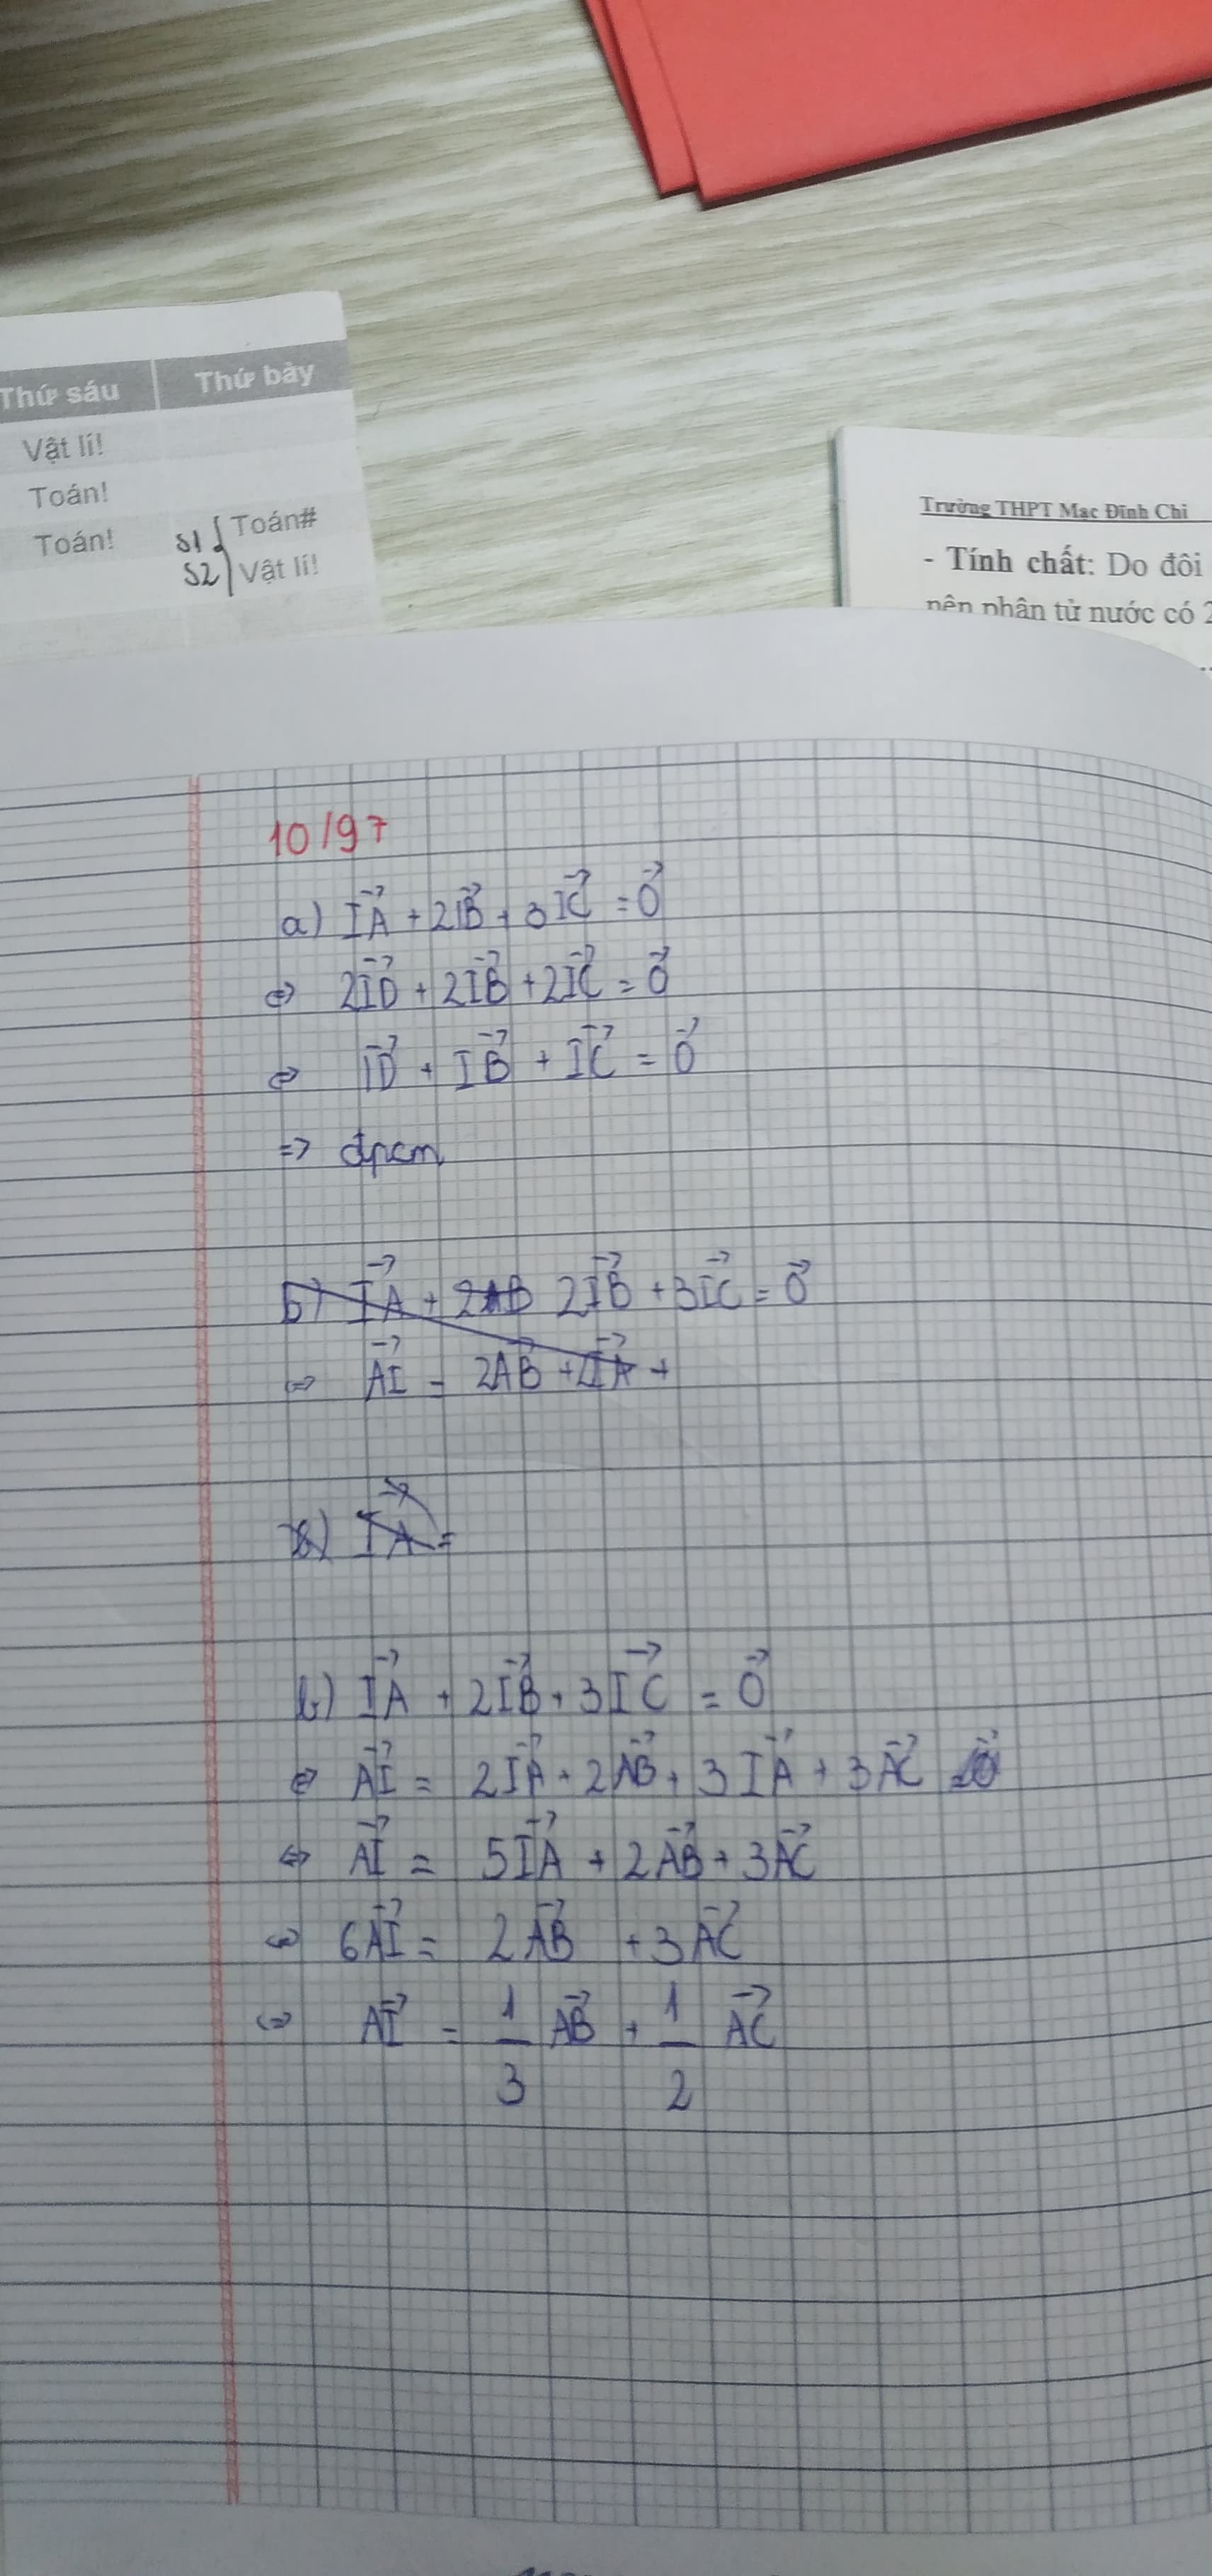 Thứ sáu Thứ bảy
Vật lí!
Toán!
Toán! S1 { Toán#
S2 Vật lí!
Trường THPT Mạc Đĩnh Chi
- Tính chất: Do đôi
nên phân tử nước có 2
10/97
a) I⃗A + 2I⃗B + 3I⃗C = 0⃗
⇔ 2I⃗D + 2I⃗B + 2I⃗C = 0⃗
⇔ I⃗D + I⃗B + I⃗C = 0⃗
=> đpcm
b) I⃗A + 2AB 2I⃗B + 3I⃗C = 0⃗
⇔ A⃗I = 2A⃗B + 2I⃗A +
b) I⃗A =
b) I⃗A + 2I⃗B + 3I⃗C = 0⃗
⇔ A⃗I = 2I⃗A + 2A⃗B + 3I⃗A + 3A⃗C
⇔ A⃗I = 5I⃗A + 2A⃗B + 3A⃗C
⇔ 6A⃗I = 2A⃗B + 3A⃗C
⇔ A⃗I = 1/3 A⃗B + 1/2 A⃗C